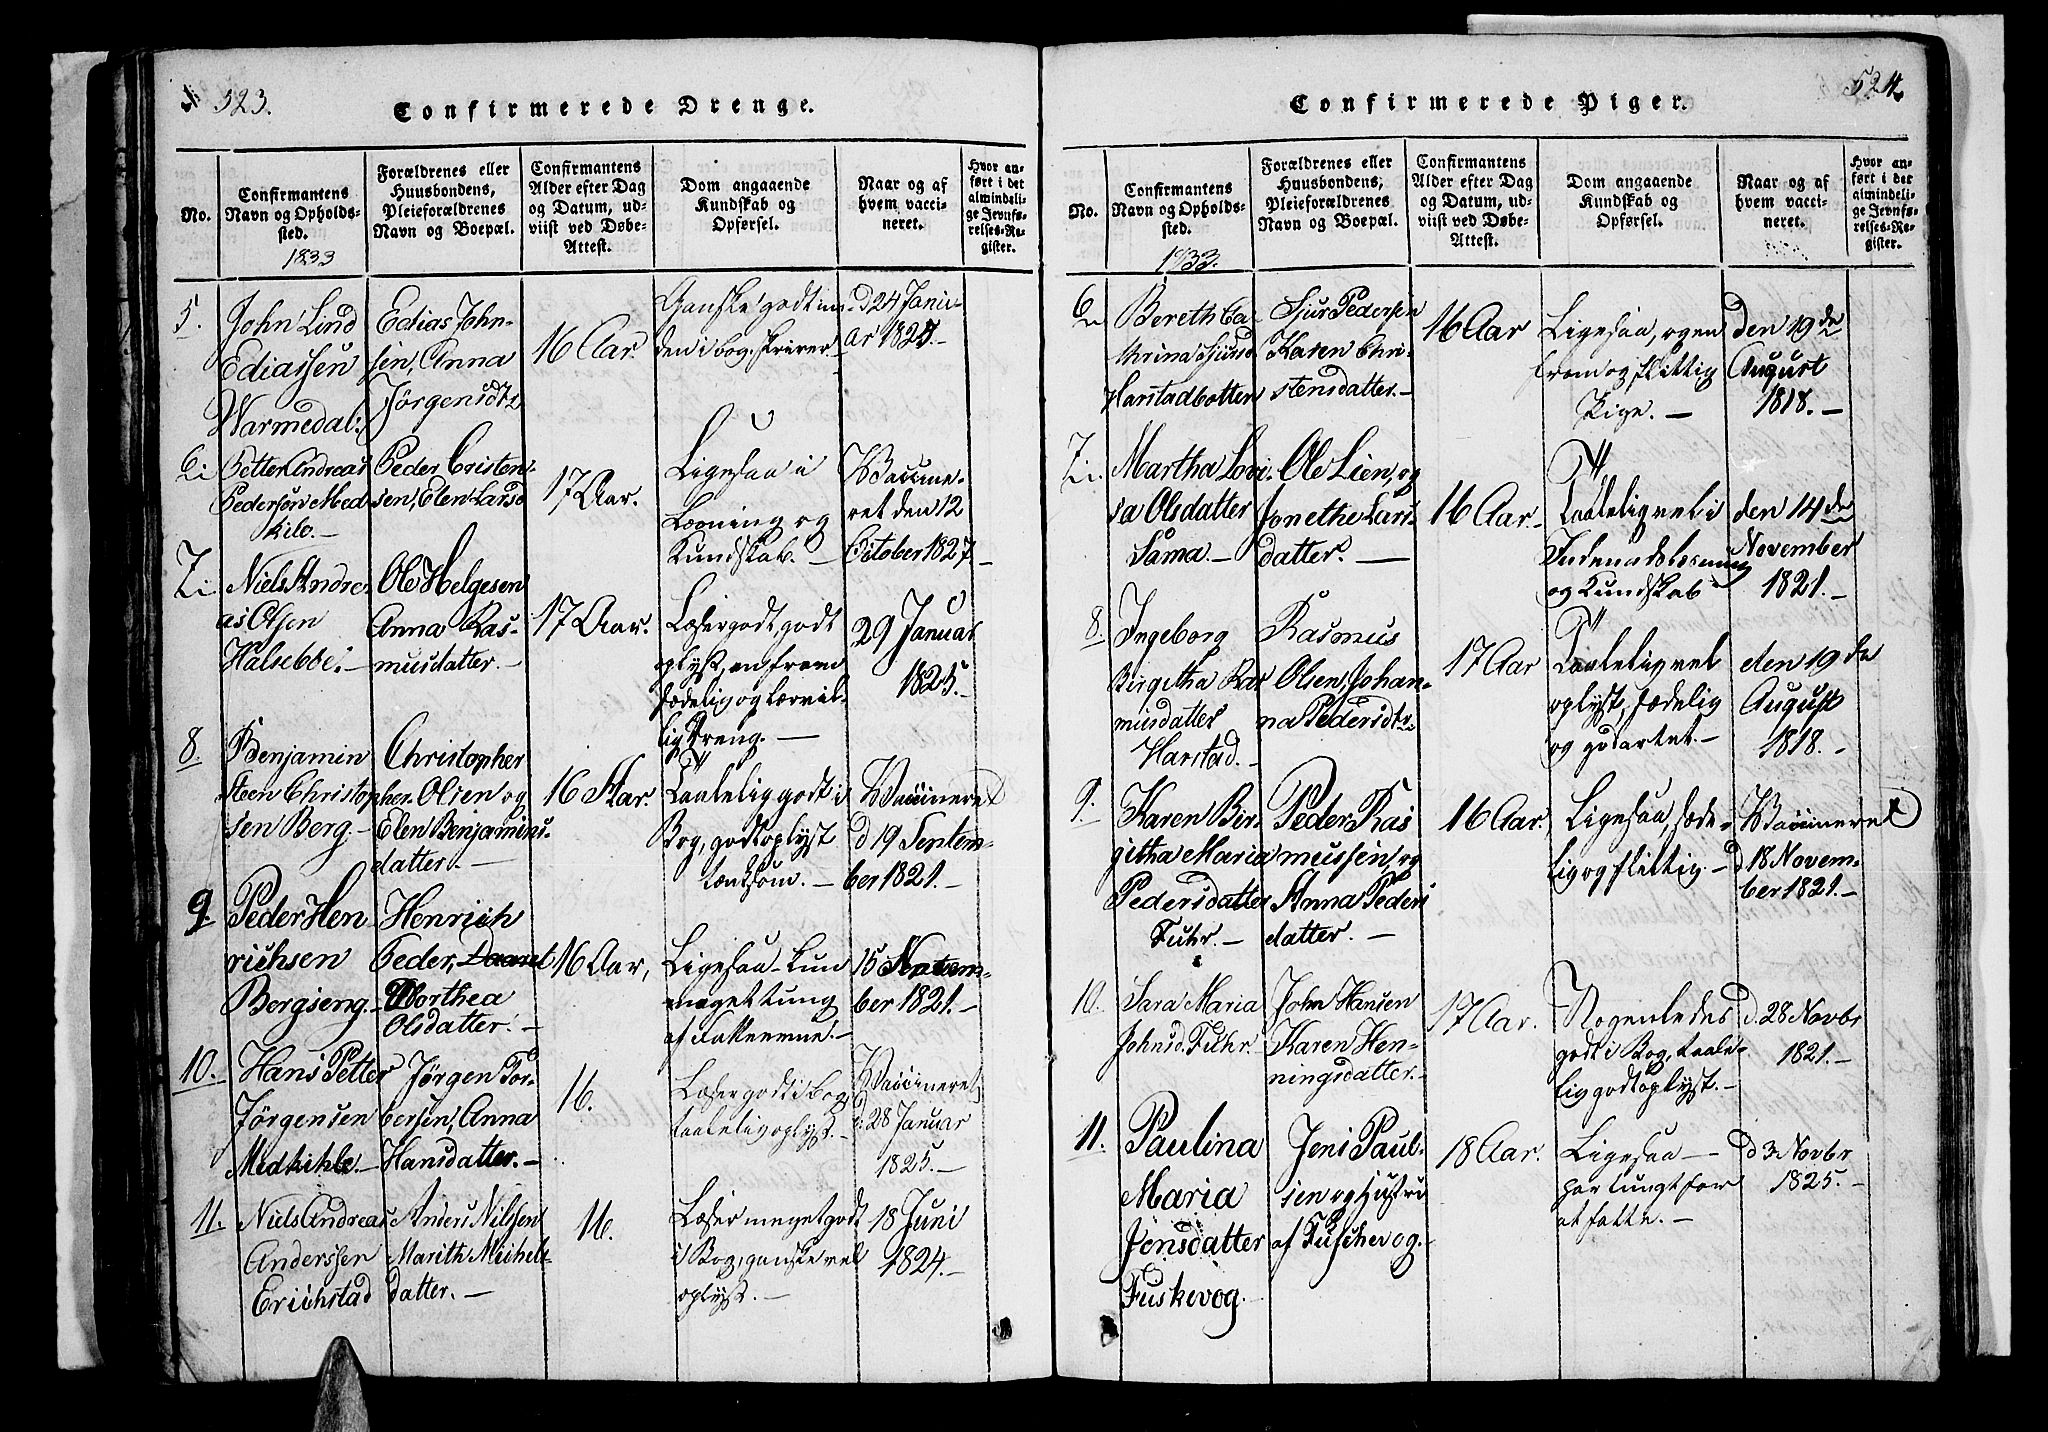 523.
Confirmerede Drenge.
No.
Confirmantens
Navn og Opholds-
sted.
1833
Forældrenes eller
Huusbondens,
Pleieforældrenes
Navn og Boepæl.
Confirmantens
Alder efter Dag
og Datum, ud-
viist ved Døbe-
Attest.
Dom angaaende
Kundskab og
Opførsel.
Naar og af
hvem vacci-
neret.
Hvor an-
ført i det
almindeli-
ge Jevnfø-
relses-Re-
gister.
5.
John Lind
Ediassen
Warmedal.
Edias John-
sen, Anna
Jörgensdtr
16 Aar.
Ganske godt in-
den i bog, skriver
d 24 Janu-
ar 1825.-
6.
Petter Andreas
Pedersen Med
kile.-
Peder Cristen-
sen, Elen Larsd
17 Aar.
Ligesaa i
Læsning og
Kundskab. -
Vaccine-
ret den 12
October 1827.-
7.
Niels Andre-
as Olsen
Halseböe.-
Ole Helgesen
Anna Ras-
musdatter.-
17 Aar.
Læser godt, godt
oplyst, en from
sædelig og lærvil-
lig Dreng. -
29 Januar
1825.-
8.
Benjamin
Steen Christop
sen Berg.-
Christopher
her Olsen og
Elen Benjamins-
datter.-
16 Aar.
Taalelig godt i
Bog, godt oplyst
tænksom. -
Vaccineret
d 19 Septem-
ber 1821.-
9.
Peder Hen
richsen
Bergseng.-
Henrich
Peder,
Dorthea
Olsdatter.-
16 Aar,
Ligesaa - kun
meget tung
af Fatteevne.-
15 Septem-
ber 1821.-
10.
Hans Petter
Jørgensen
Medkihle.-
Jørgen Tor-
bersen, Anna
Hansdatter.-
16.
Læser godt i bog
taalelig oplyst.-
Vaccineret
d: 28 Januar
1825.-
11.
Niels Andreas
Anderssen
Erichstad
Anders Nilssen
Marith Michels-
datter.-
16.
Læser meget godt
i Bog, ganske vel
oplyst.-
18 Juni
1824.-
524
Confirmerede Piger.
No.
Confirmantens
Navn og Opholds-
sted.
1833.
Forældrenes eller
Huusbondens,
Pleieforældrenes
Navn og Boepæl.
Confirmantens
Alder efter Dag
og Datum, ud-
viist ved Døbe-
Attest.
Dom angaaende
Kundskab og
Opførsel.
Naar og af
hvem vacci-
neret.
Hvor an-
ført i det
almindeli-
ge Jevnfø-
relses-Re-
gister.
6
Bereth Ca-
thrina Sjursd
Harstadbotten
Sjur Pedersen
Karen Chri-
stensdatter.-
16 Aar
Ligesaa, og en
from og flittig
Pige. -
den 19de
August
1818.-
7.
Martha Lovi-
sa Olsdatter
Sama.-
Ole Lien, og
Jonethe Lars-
datter.-
16 Aar.
Taalelig vel i
og Kundskab
den 14de
November
1821.-
8.
Ingeborg
Birgitha Ras
musdatter
Harstad.-
Rasmus
Olsen, Johan-
na Pedersdtr
17 Aar
Taalelig vel
oplyst, sædelig
og godartet.-
den 19de
August
1818.-
9.
Karen Bir-
githa Maria
Pedersdatter
Fuhr.-
Peder Ras
mussen, og
Anna Peders
datter.-
16 Aar.
Ligesaa, sæde-
lig og flittig.-
Vaccineret
d 18 Novem-
ber 1821.-
10.
Sara Maria
Johnsd. Fuhr.
John Hansen
Karen Hen-
ningsdatter.-
17 Aar.
Nogenledes
godt i Bog, taale-
lig godt oplyst.-
d. 28 Novbr
1821.-
11.
Paulina
Maria
Jensdatter
Fuskevog.
Jens Paul-
sen og Hustru
af Fuschevog.-
18 Aar.
Ligesaa -
har tungt for
at fatte.-
d 3 Novbr
1825.-